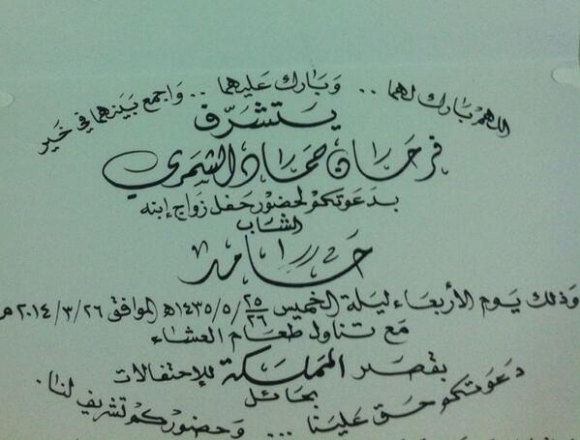 اللهم بارك لهما .. وبارك عليهما .. واجمع بينهما في خير
يتشرف
فرحان حماد الشمري
بدعوتكم لحضور حفل زواج إبنه
الشاب
حامد
وذلك يوم الأربعاء ليلة الخميس ٢٥/٢٦/٥/١٤٣٥ه الموافق ٢٦/٣/٢٠١٤م
مع تناول طعام العشاء
بقصر المملكة للإحتفالات
بحائل
دعوتكم حق علينا ... وحضوركم تشريف لنا.